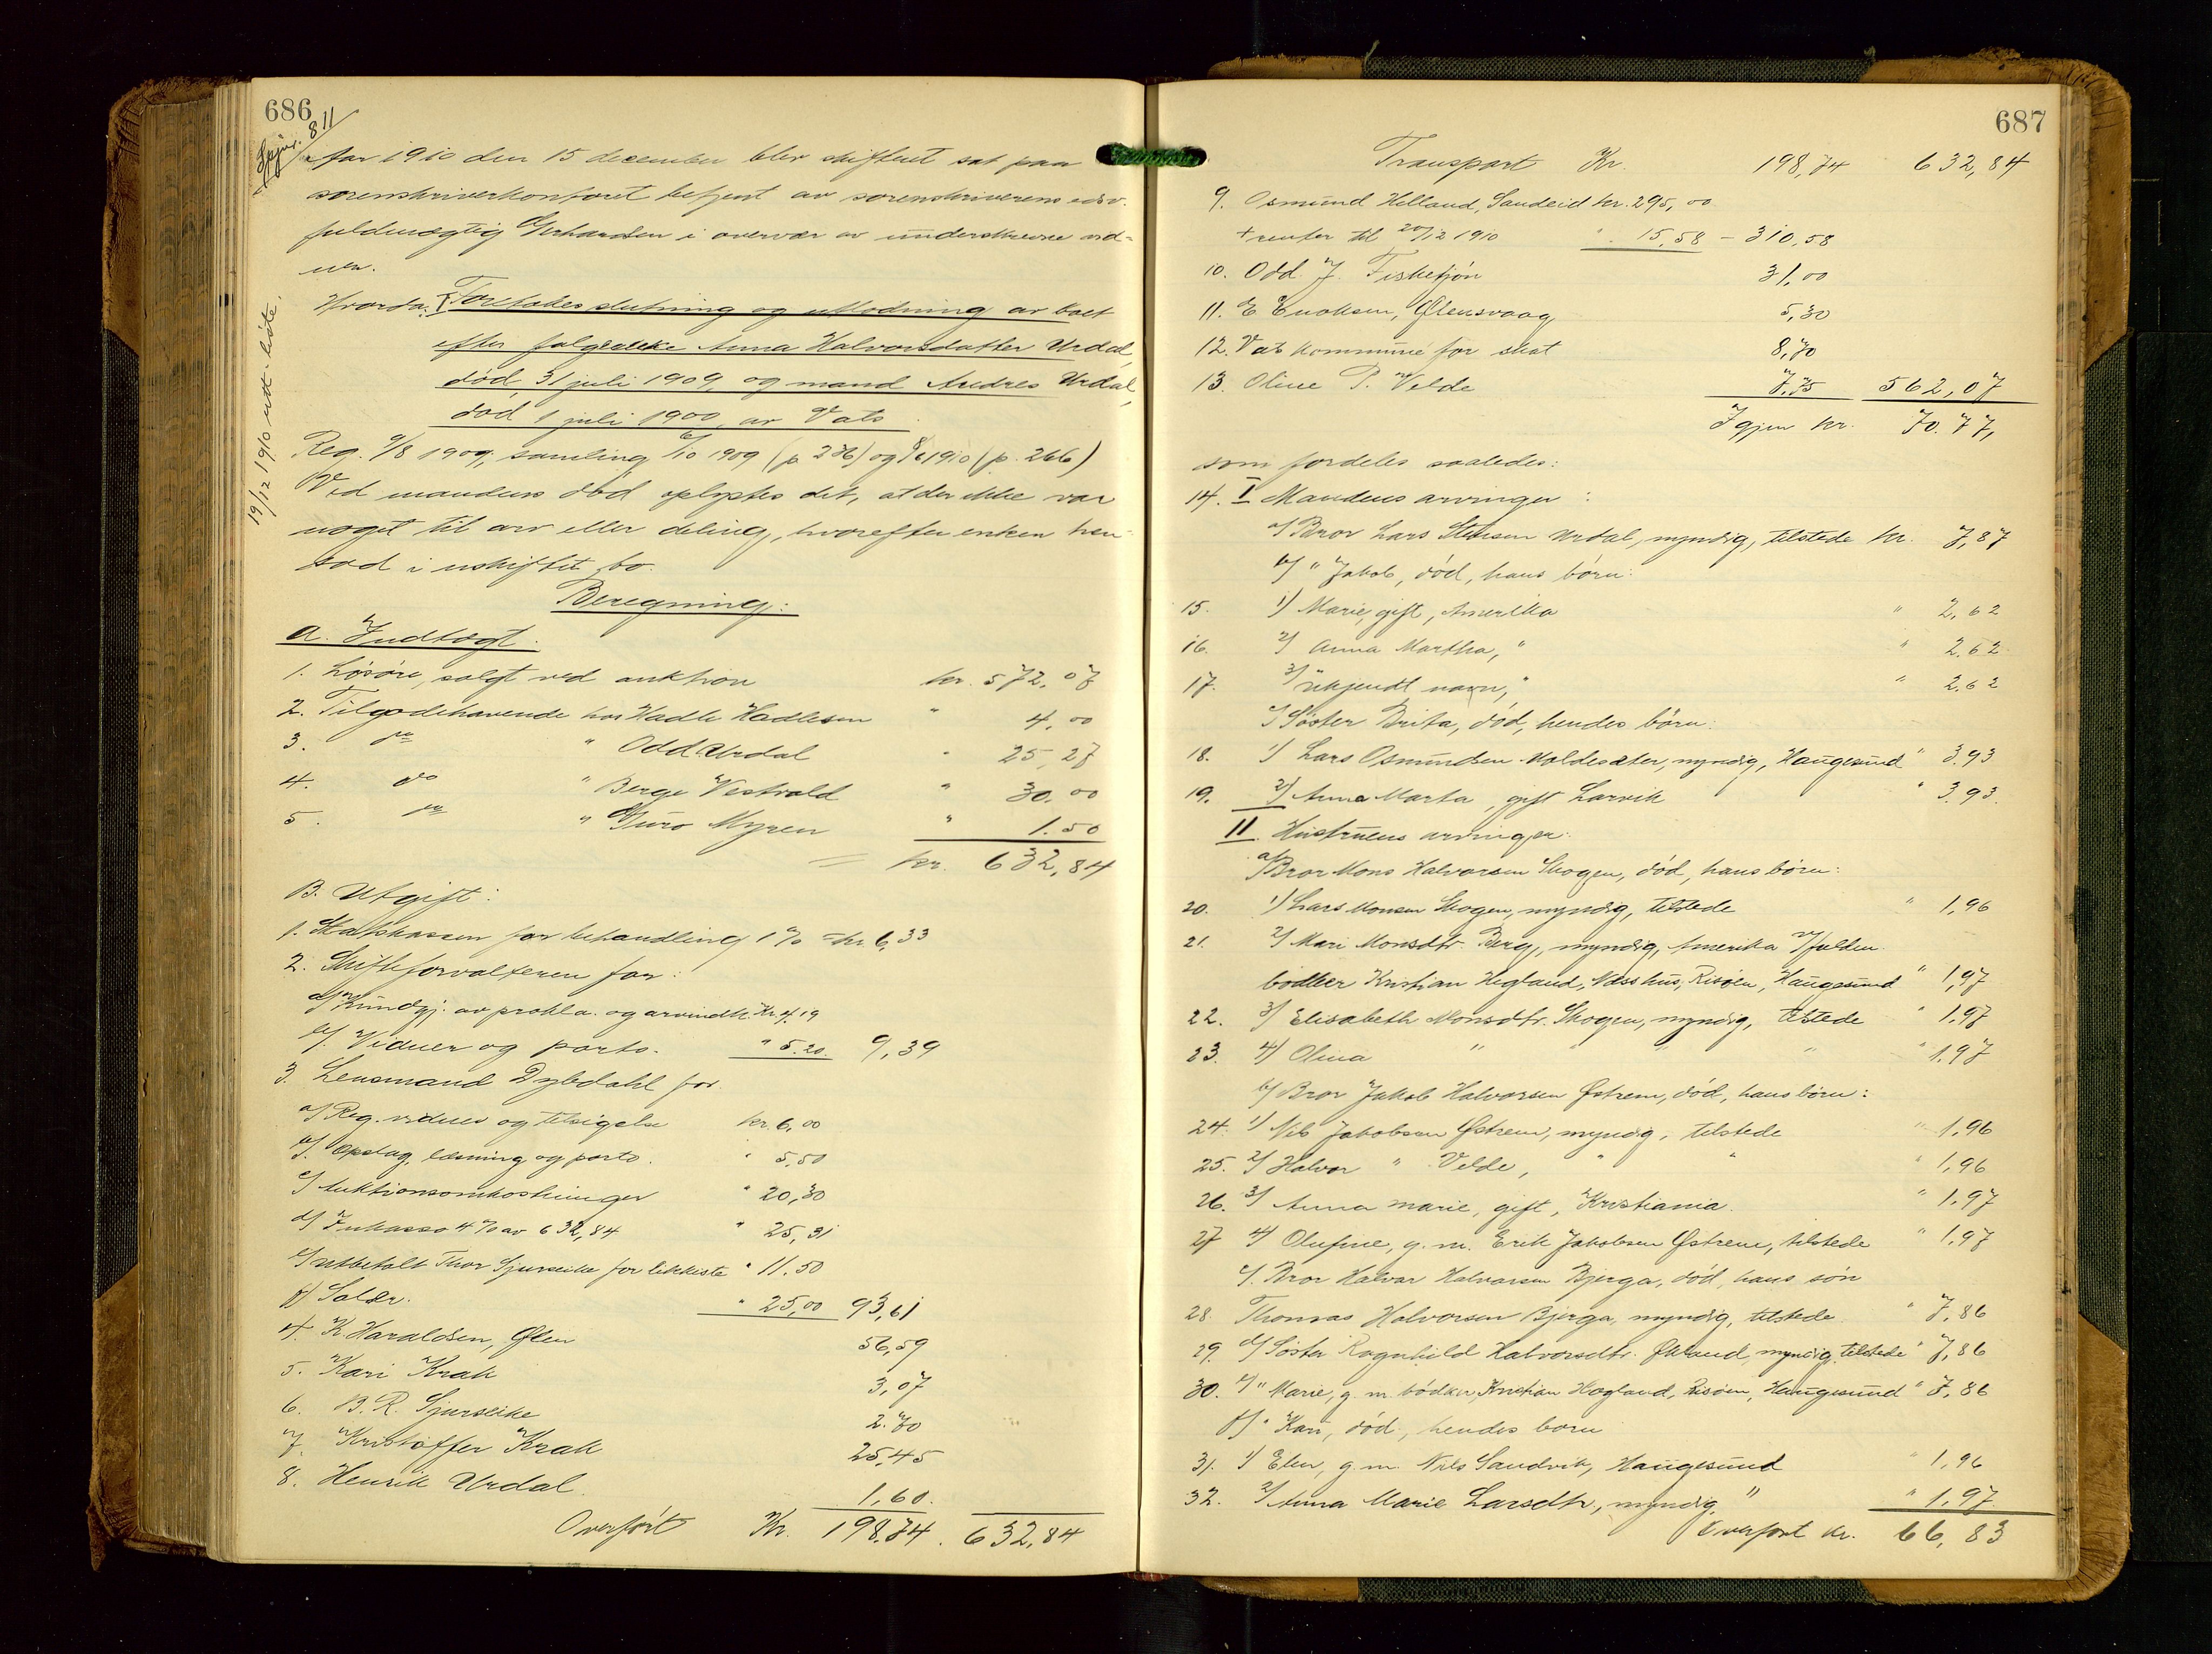 686
811
19/12 1910 utt. liste.
Aar 1910 den 15 december blev skifteret sat paa
sorenskriverkontoret betjent av sorenskriverens edsv.
fuldmægtig Gerhardsen i overvær av underskrevne vid-
ner.
Hvorda: Foretokes slutning og utlodning av boet
efter Anna Halvorsdatter Urdal,
død 31 juli 1909 og mand Andres Urdal,
død 1 juli 1900, av Vats.
Reg. 9/8 1909, samling 6/10 1909 (p 236) og 1910 (p. 266)
Ved mandens død oplystes det, at der ikke var
noget til arv eller deling, hvorefter enken hen-
sad i uskiftet bo.
Beregning:
A. Indtægt.
1. Løsøre, solgt ved auktion kr. 572,07
2. Tilgodehavende hos Hadle Hadlesen " 4,00
3. do " Odd Urdal " 25,27
4. do " Berge Vestvold " 30,00
5. do " Guro Myren " 1.50
= kr. 632,84
B. Utgift:
1. Statskassen for behandling 1 % = kr. 6,33
2. Skifteforvalteren for:
a) Kundgj. av prokla. og arvindk. Kr. 4.19
b). Vidner og porto. " 5.20. 9,39
3. Lensmand Dybdahl for.
a) Reg. vidner og tilsigelse kr. 6,00
b). Opslag, læsning og porto. " 5,50
c) Auktionsomkostninger " 20,30
d) Inkasso 4 % av 632,84 " 25,31
e) utbetalt Thor Sjurseike for likkiste " 11.50
f) Salær. " 25,00 93,61
4. K. Haraldsen, Ølen 56,59
5. Kari Krak 3,07
6. B. R. Sjurseike 2.70
7. Kristoffer Krak 25,45
8. Henrik Urdal. 1,60.
Overført Kr. 198,74. 632,84
687
Transport Kr. 198,74 632,84
9. Osmund Helland, Sandeid kr. 295,00
+ renter til 20/12 1910 " 15,58 - 310,58
10. Odd J. Fisketjøn 31,00
11. E Enoksen, Ølensvaag 5,30
12. Vats kommune for skat 8,70
13. Oline P. Velde 7.75 562,07
Igjen kr. 70.77,
som fordeles saaledes:
14. I Mandens arvinger:
a) Bror Lars Stensen Urdal, myndig, tilstede kr. 7,87
b) " Jakob, død, hans børn:
15. 1) Marie, gift, Amerika " 2,62
16. 2) Anna Martha, " " 2.62
17. 3) ukjendt navn, " " 2.62
c) Søster Brita, død, hendes børn:
18. 1) Lars Osmundsen Valdesæter, myndig, Haugesund " 3.93
19. 2) Anna Marta, gift Larvik " 3.93.
II Hustruens arvinger:
a) Bror Mons Halvorsen Skogen, død, hans børn:
20. 1) Lars Monsen Skogen, myndig, tilstede " 1,96
21. 2) Mari Monsdtr. Berg, myndig, Amerika
bødker Kristian Hegland, Næsshus, Risøen, Haugesund " 1,97
22. 3) Elisabeth Monsdtr. Skogen, myndig, tilstede " 1.97
23. 4) Olina " " " " " 1.97
b) Bror Jakob Halvorsen Østrem, død, hans børn:
24. 1) Nils Jakobsen Østrem, myndig, tilstede " 1,96
25. 2) Halvor " Velde, " " " 1,96
26. 3) Anna Marie, gift, Kristiania. " 1,97
27 4) Olufine, g. m. Erik Jakobsen Østrem, tilstede " 1,97
c). Bror Halvor Halvorsen Bjerga, død, hans søn
28. Thomas Halvorsen Bjerga, myndig, tilstede. " 7,86
29. d) Søster Ragnhild Halvorsdtr. Økland, myndig, tilstede " 7,86
30. e) " Marie, g. m. bødker Kristian Hogland, Risøen, Haugesund " 7,86
f) " Kari, død, hendes børn
31. 1) Elen, g. m. Nils Sandvik, Haugesund " 1,96
32. 2) Anna Marie Larsdtr, myndig, " " 1,97
Overført kr. 66,83